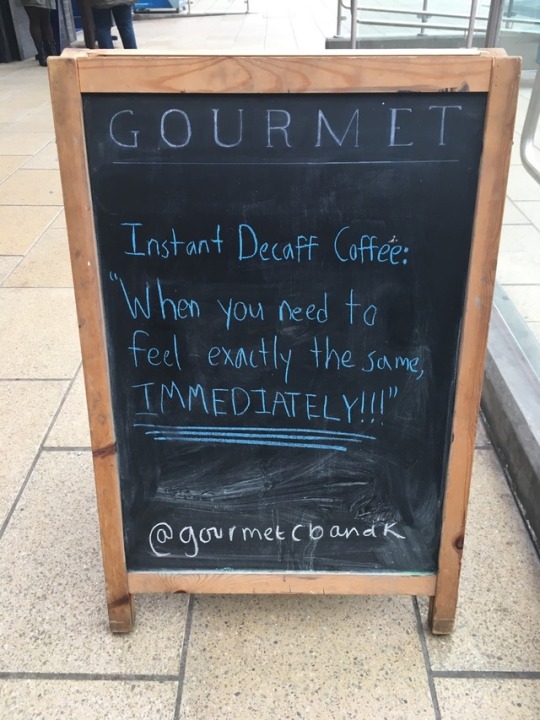 GOURMET
Instant Decaff Coffee:
"When you need to
feel exactly the same,
IMMEDIATELY!!!"
@gourmetcbandk